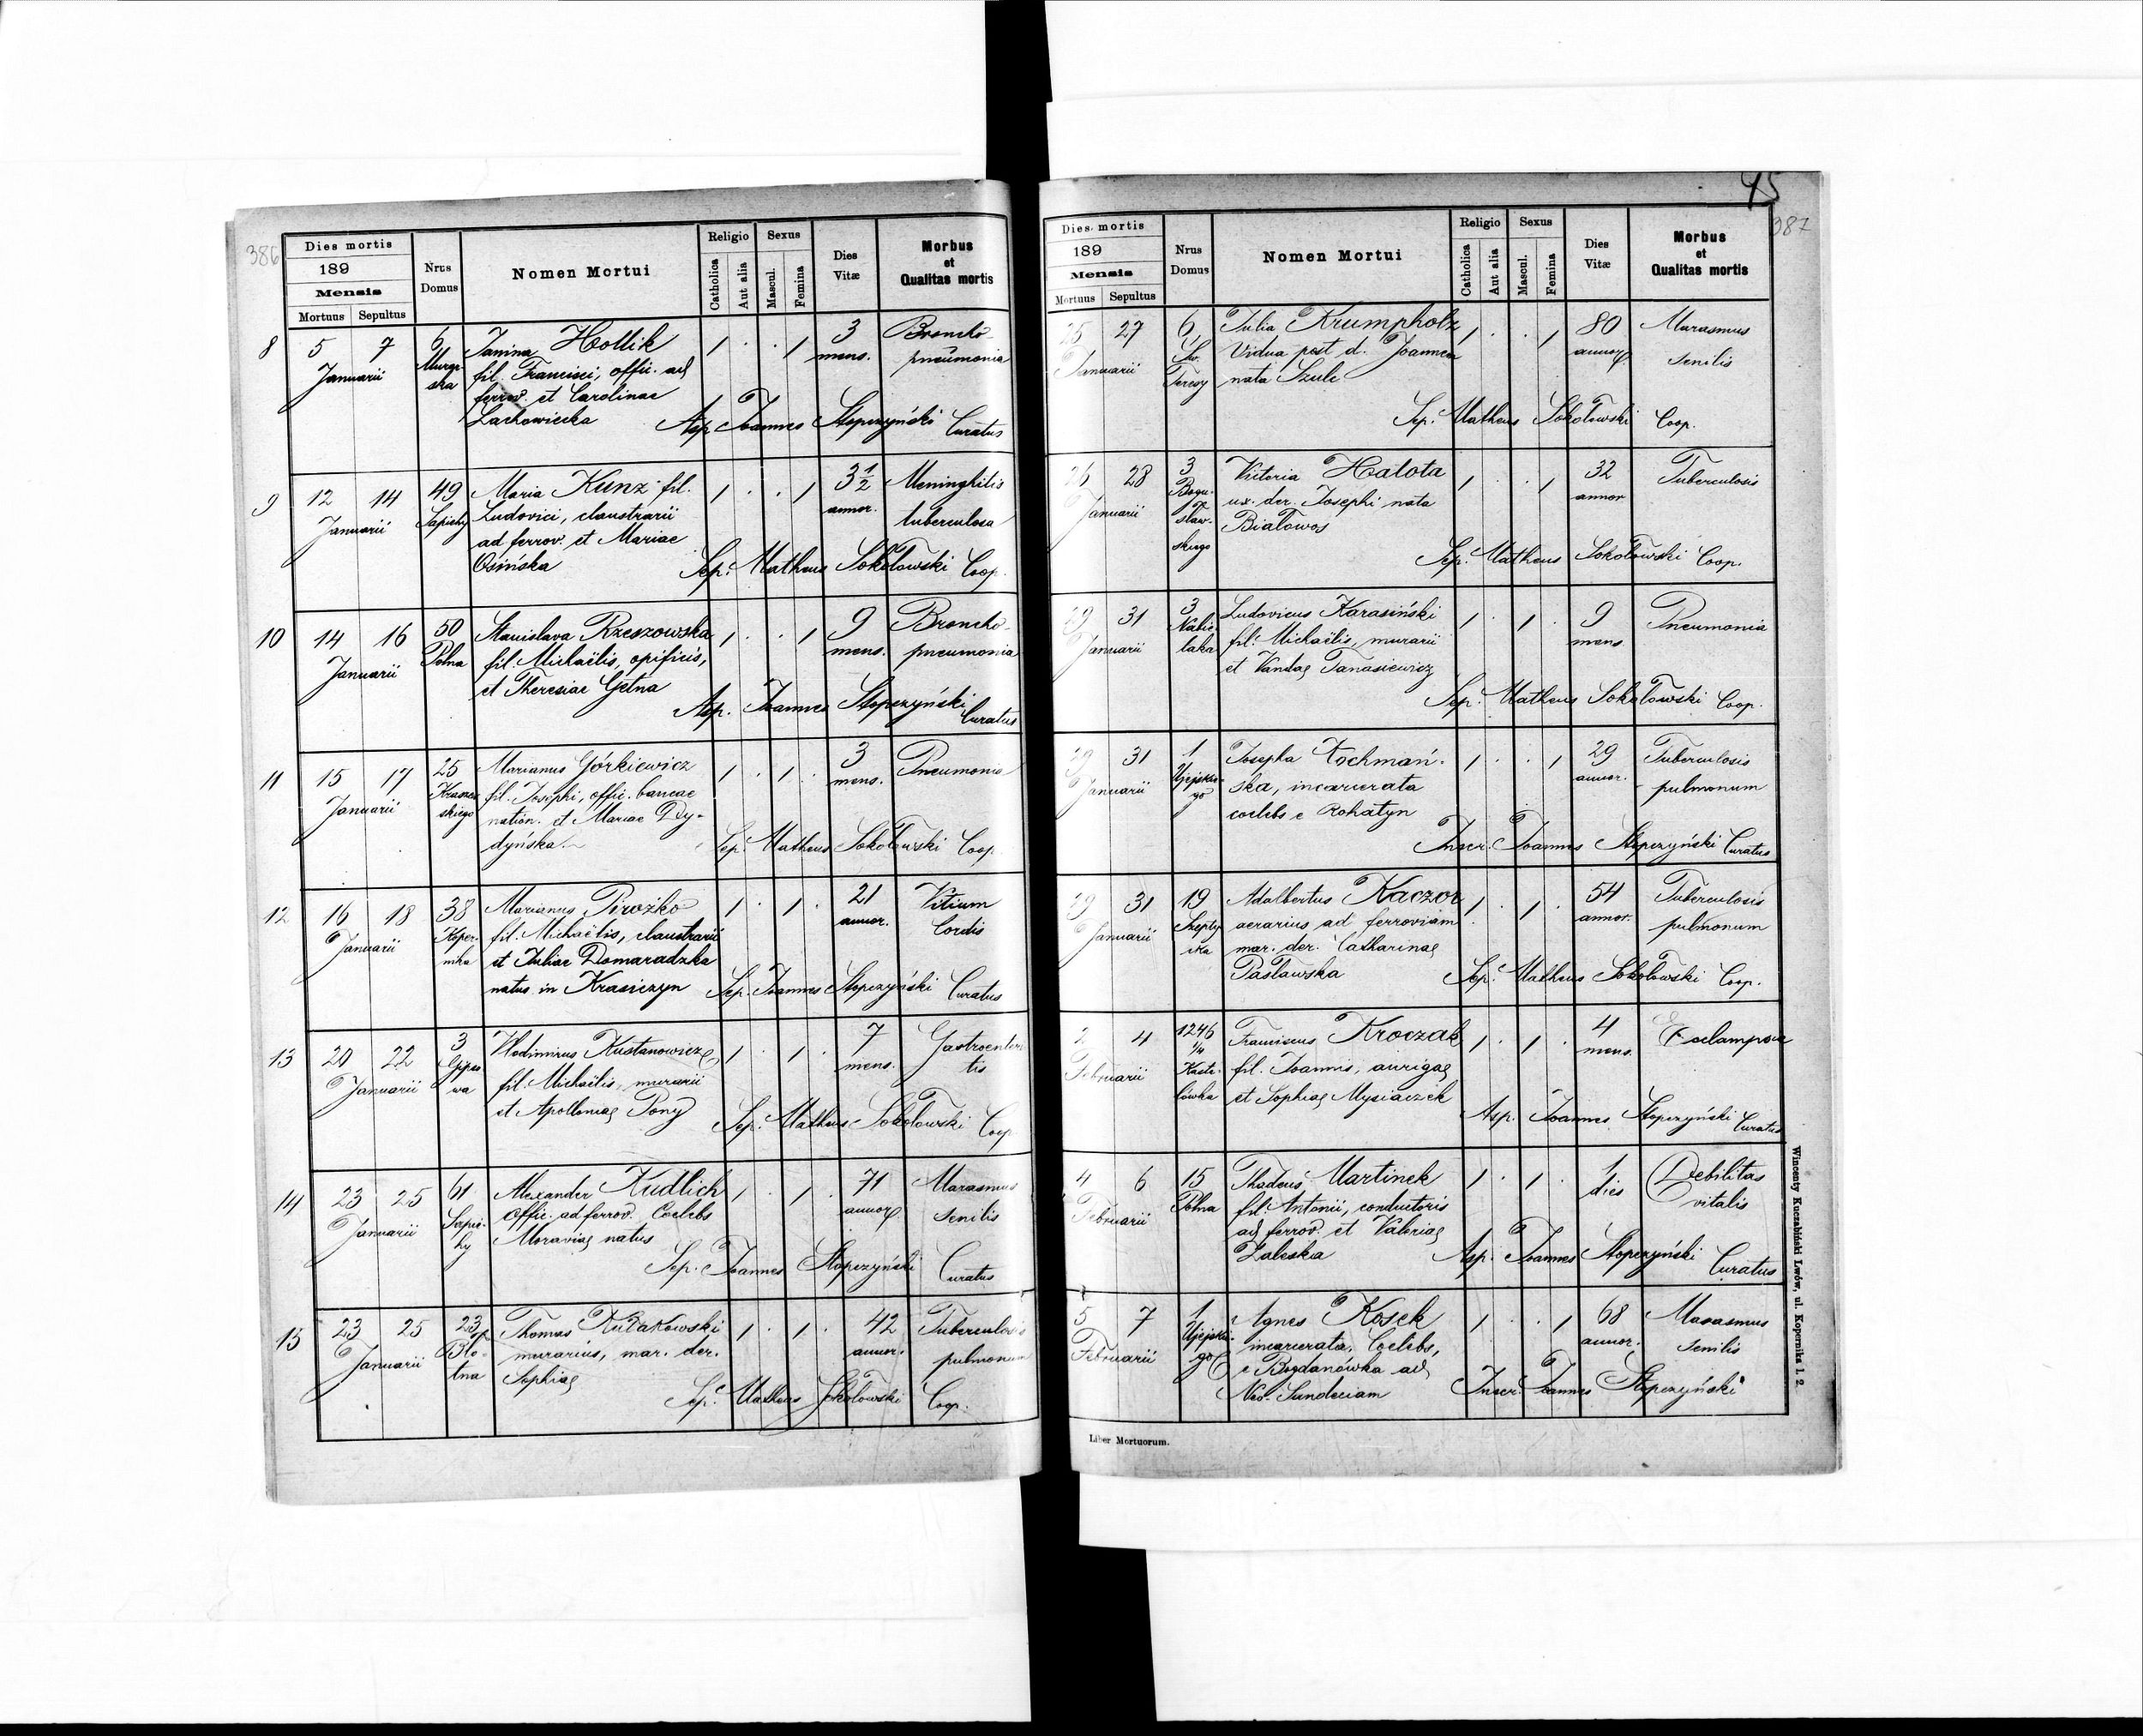 386
Dies mortis
189
Mensis
Mortuus Sepultus
Nrus Domus
Nomen Mortui
Religio
Catholica
Aut alia
Sexus
Mascul.
Femina
Dies Vitæ
Morbus et Qualitas mortis
8 5 7 6 Janina Hollik 1 . . 1 3 Broncho-
Januarii fil. Francisci, offic. ad mens. pneumonia
ferrov. et Carolinae
Lachowiecka Asp. Joannes Stopczyński Curatus
9 12 14 49 Maria Kunz fil. 1 . . 1 3½ Meninghitis
Januarii Sapiehy Ludovici, claustrarii annor. tuberculosa
ad ferrov. et Mariae
Osińska Sep. Matheus Sokołowski Coop.
10 14 16 50 Stanislava Rzeszowska 1 . . 1 9 Broncho-
Januarii Polna fil. Michaëlis, opificis, mens. pneumonia
et Theresiae Getna
Asp. Joannes Stopczyński Curatus
11 15 17 25 Marianus Górkiewicz 1 . 1 . 3 Pneumonia
Januarii fil. Josephi, offic. bancae mens.
skiego nation. et Mariae Dy-
dyńska Sep. Matheus Sokołowski Coop.
12 16 18 38 Marianus Pirożko 1 . 1 . 21 Vitium
Januarii Koper- fil. Michaëlis, claustrarii annor. Cordis
nika et Juliae Domaradzka
natus in Krasiczyn Sep. Joannes Stopczyński Curatus
13 20 22 3 Vlodimirus Kustanowicz 1 . 1 . 7 Gastroenteri
Januarii fil. Michaëlis, murarii mens. tis
et Apolloniae Pony
Sep. Matheus Sokołowski Coop
14 23 25 61 Alexander Kudlich 1 . 1 . 71 Marasmus
Januarii Sapie- offic. ad ferrov. Coelebs annor. senilis
hy Moraviae natus
Sep. Joannes Stopczyński Curatus
15 23 25 23 Thomas Kułakowski 1 . 1 . 42 Tuberculosis
Januarii Bło- murarius, mar. der. annor. pulmonum
tna Sophiae
Sep. Matheus Sokołowski Coop.
45
387
Dies mortis
189
Mensis
Mortuus Sepultus
Nrus Domus
Nomen Mortui
Religio
Catholica
Aut alia
Sexus
Mascul.
Femina
Dies Vitæ
Morbus et Qualitas mortis
25 27 6 Julia Krumpholz 1 . . 1 80 Marasmus
Januarii Św. Vidua post d. Joannem annor. senilis
Teresy nata Szulc
Sep. Matheus Sokołowski Coop.
26 28 3 Victoria Hałota 1 . . 1 32 Tuberculosis
Januarii Bogu- ux. der. Josephi nata annor
sław- Białowos
skiego
Sep. Matheus Sokołowski Coop.
29 31 3 Ludovicus Karasiński 1 . 1 . 9 Pneumonia
Januarii Nabie- fil. Michaëlis, murarii mens.
laka et Vandae Tanasiewicz
Sep. Matheus Sokołowski Coop.
29 31 1 Josepha Tochmań- 1 . . 1 29 Tuberculosis
Januarii Ujejskie- ska, incarcerata annor. pulmonum
go coelebs e Rohatyn
Inscr. Joannes Stopczyński Curatus
29 31 19 Adalbertus Kaczor 1 . 1 . 54 Tuberculosis
Januarii Szepty- aerarius ad ferroviam annor. pulmonum
cka mar. der. Catharinae
Pasławska Sep. Matheus Sokołowski Coop.
2 4 1246 Franciscus Kroczak 1 . 1 . 4 Eclampsia
Februarii ¼ fil. Joannis, aurigae mens.
Kaste- et Sophiae Mysiaczek
lówka
Asp. Joannes Stopczyński Curatus
4 6 15 Thadeus Martinek 1 . 1 . 1 Debilitas
Februarii Polna fil. Antonii, conductoris dies vitalis
ad ferrov. et Valeriae
Zaleska Asp. Joannes Stopczyński Curatus
5 7 1 Agnes Kosek 1 . . 1 68 Marasmus
Februarii Ujejskie- incarcerata, Coelebs, annor. senilis
go e Bogdanówka ad
Neo-Sandeciam Inscr. Joannes Stopczyński
Liber Mortuorum.
Wincenty Kuczabiński Lwów, ul. Kopernika l. 2.